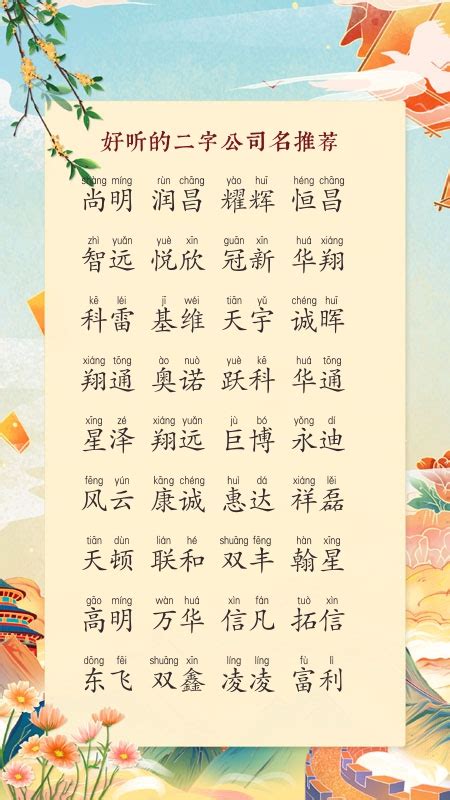 好听的二字公司名推荐
shàng míng rùn chāng yào huī héng chāng
尚明 润昌 耀辉 恒昌
zhì yuǎn yuè xīn guān xīn huá xiáng
智远 悦欣 冠新 华翔
kē léi jī wéi tiān yǔ chéng huī
科雷 基维 天宇 诚晖
xiáng tōng ào nuò yuè kē huá tōng
翔通 奥诺 跃科 华通
xīng zé xiáng yuǎn jù bó yǒng dí
星泽 翔远 巨博 永迪
fēng yún kāng chéng huì dá xiáng lěi
风云 康诚 惠达 祥磊
tiān dùn lián hé shuāng fēng hàn xīng
天顿 联和 双丰 翰星
gāo míng wàn huá xìn fán tuò xìn
高明 万华 信凡 拓信
dōng fēi shuāng xīn líng líng fù lì
东飞 双鑫 凌凌 富利